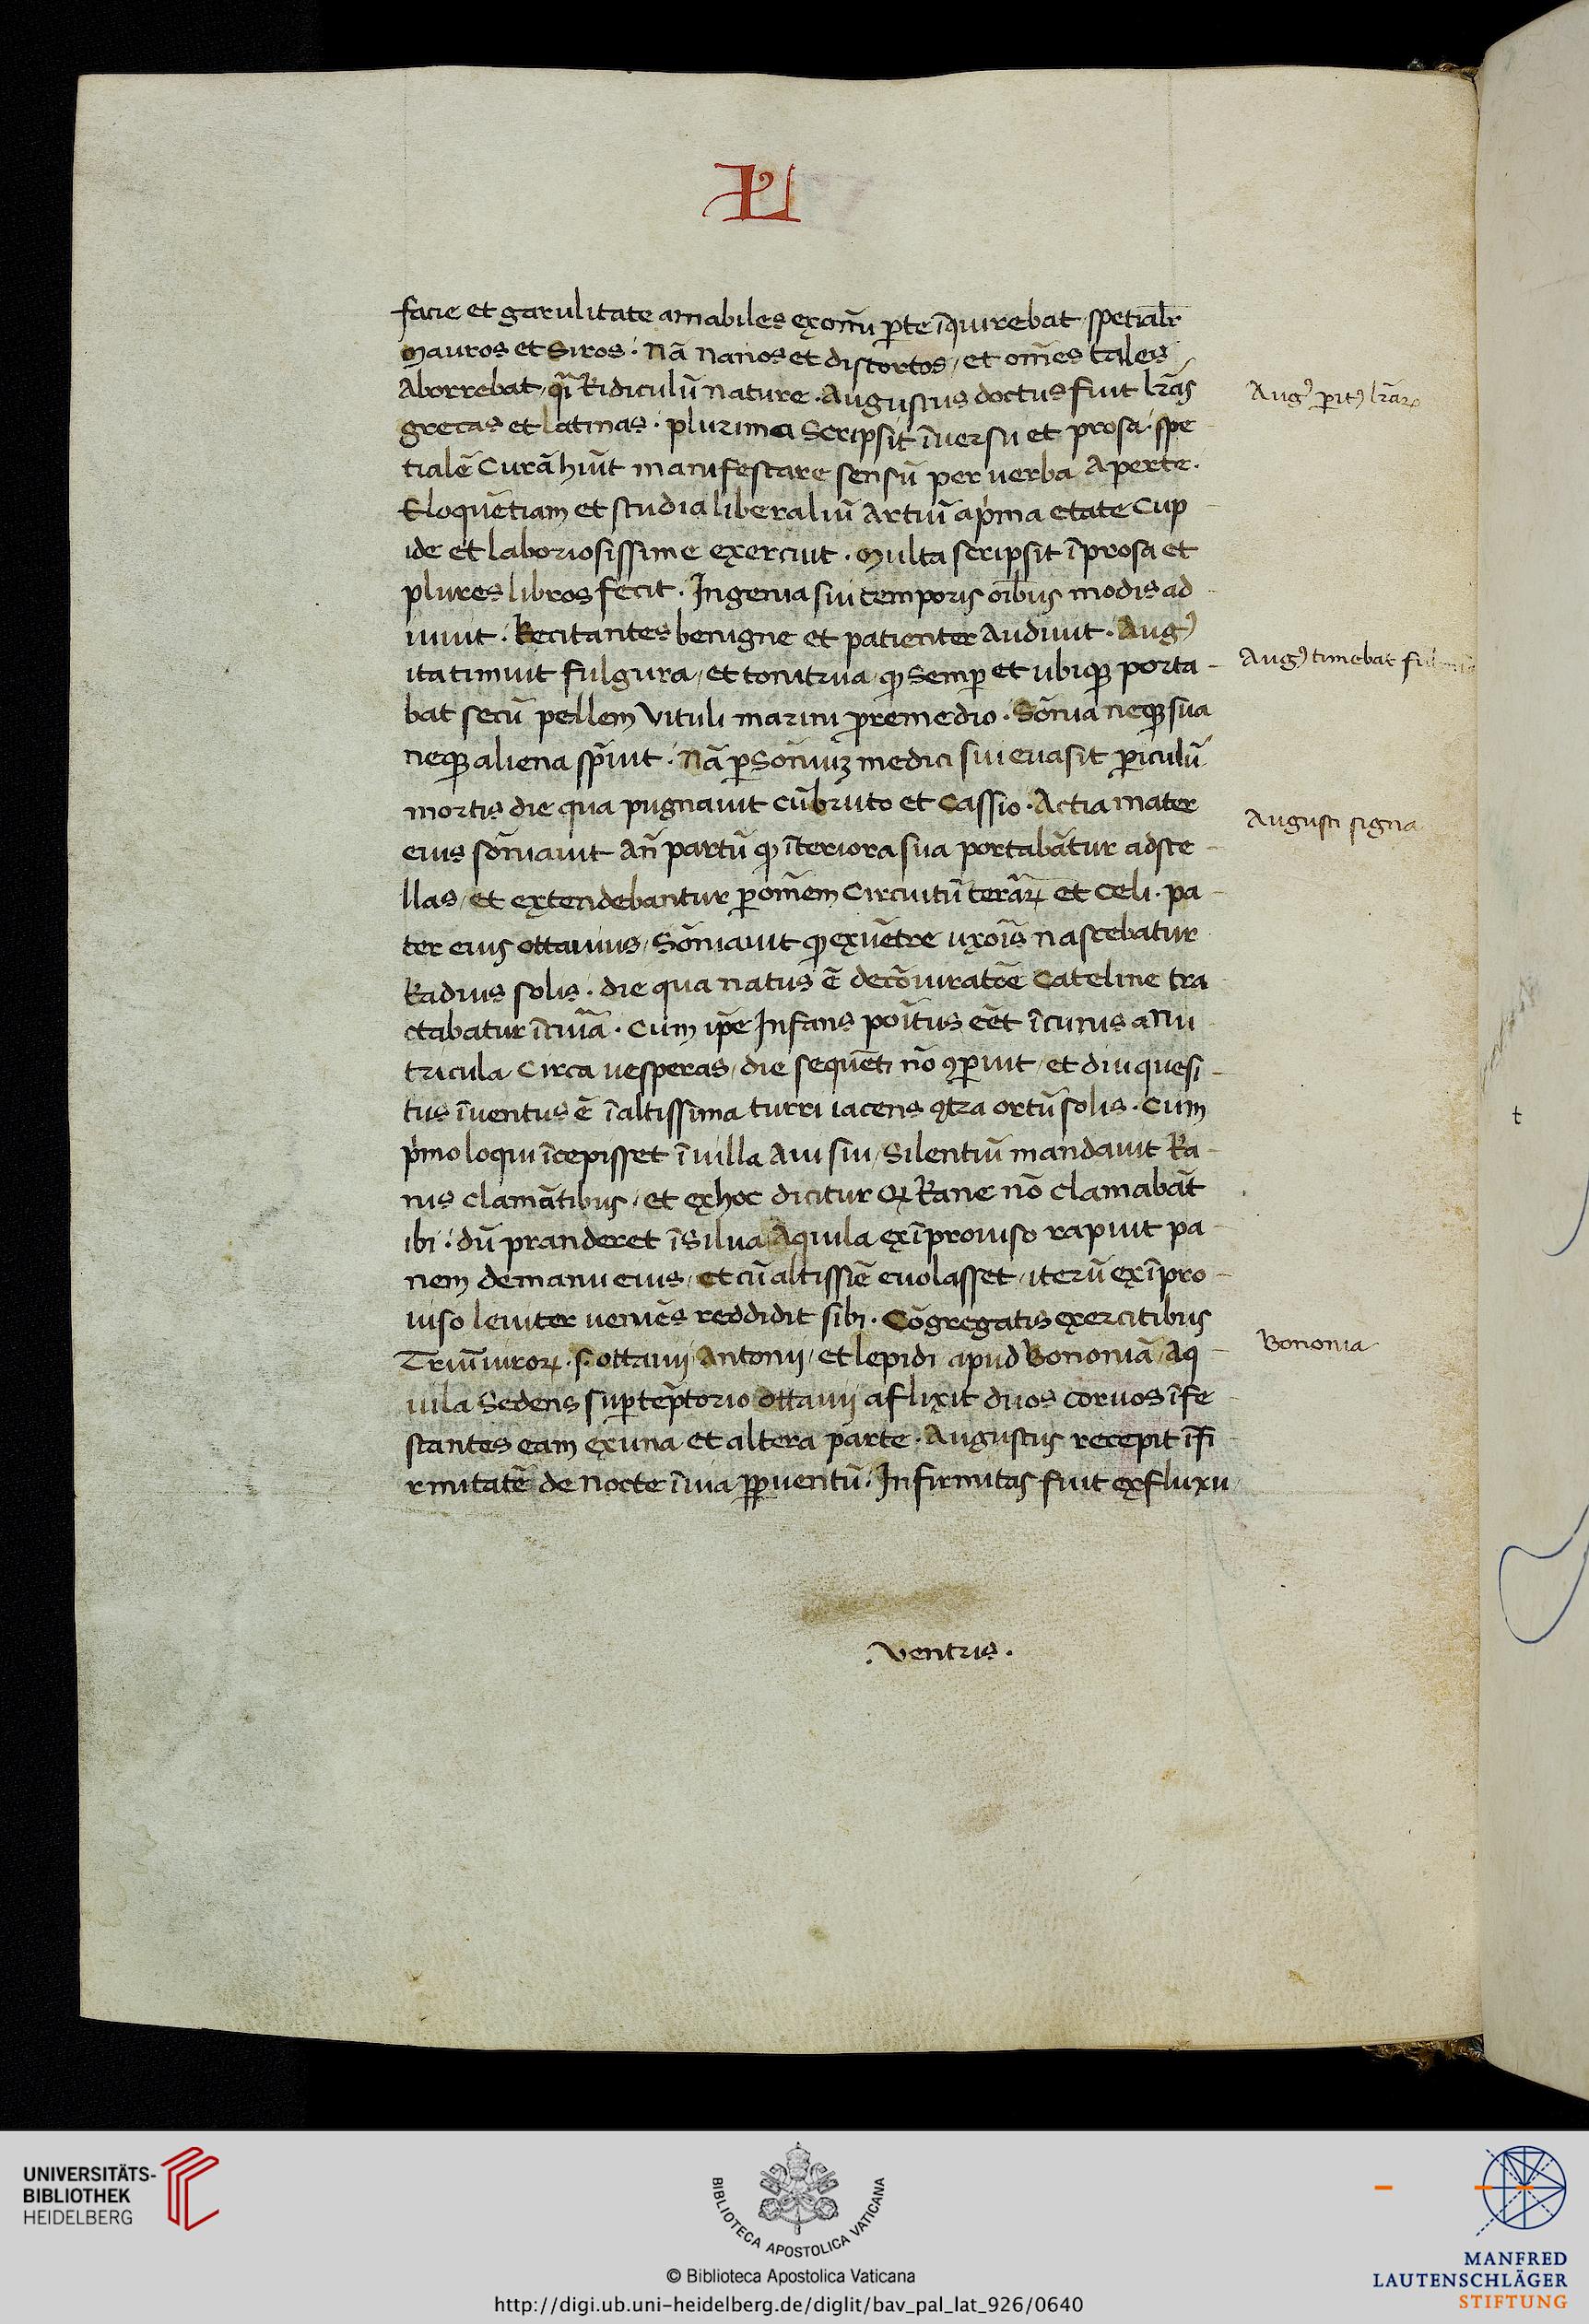 facie et garulitate amabiles ex om̄i ꝑte īquirebat spetialr̄
Mauros et Siros. Nā Nanos et distortos, et om̄es tales
Aborrebat, q̄i Ridiculū Nature. Augustus doctus fuit lr̄as
grecas et latinas. plurima Scripsit īversu et prosa. spe
tialē Curā hiut̄ manifestare sensū per verba Aperte.
Eloquētiam et studia liberaliū Artiū ap̄ma etate Cup
ide et laboriosissime exercuit. Multa scripsit ī prosa et
plures libros fecit. Ingenia sui temporis oībus modis ad
iuuit. Recitantes benigne et patienter Audiuit. Augꝰ
ita timuit fulgura, et tonitrua, ꝙ Semꝑ et ubiqꝫ porta
bat secū pellem Vituli marini ꝓremedio. Sōnia neqꝫ sua
neqꝫ aliena sp̄uit. Nā ꝑ Sōniuꝫ medici sui euasit ꝑiculū
mortis die qua pugnauit cū bruto et Cassio. Actia mater
eius sōniauit An̄ partū ꝙ īteriora sua portabātur ad ste
llas, et extendebantur ꝑ om̄em Circuitū terāꝝ et Celi. pa
ter eius ottauius, Sōniauit ꝙ ex uētre uxoīs nascebatur
Radius solis. die qua natus ē de cōiuratōe Cateline tra
ctabatur ī curia. Cum ip̄e Infans poītus eēt ī cunis a nu
tricula Circa uesperas, die sequēti nō ꝯꝑuit, et diu quesi
tus īuentus ē ī altissima turri iacens ꝯtra ortū solis. Cum
p̄mo loqui īcepisset ī uilla Aui sui, Silentiū mandauit Ra
nis clamātibus, et ex hoc dicitur qꝝ Rane nō clamabāt
ibi. dū pranderet ī Silua Aquila ex īprouiso rapuit pa
nem de manu eius, et cū altissīe euolasset, iterū ex īpro
uiso leuiter ueniēs reddidit sibi. Cōgregatis exercitibus
Triūuiroꝝ .s. ottauij Antonij, et lepidi apud Bononiā, Aq
uila Sedens suꝑ tēptorio ottauij aflixit duos coruos īfe
stantes eam ex una et altera parte. Augustus recepit īfi
rmitatē de nocte ī uia ꝓꝑ uentū. Infirmitas fuit ex fluxu
.ventris.
Augꝰ ꝑitꝰ lr̄aꝝ
Augꝰ timebat
Augusti signa
Bononia
UNIVERSITÄTS-
BIBLIOTHEK
HEIDELBERG
BIBLIOTECA APOSTOLICA VATICANA
© Biblioteca Apostolica Vaticana
http://digi.ub.uni-heidelberg.de/diglit/bav_pal_lat_926/0640
MANFRED
LAUTENSCHLÄGER
STIFTUNG